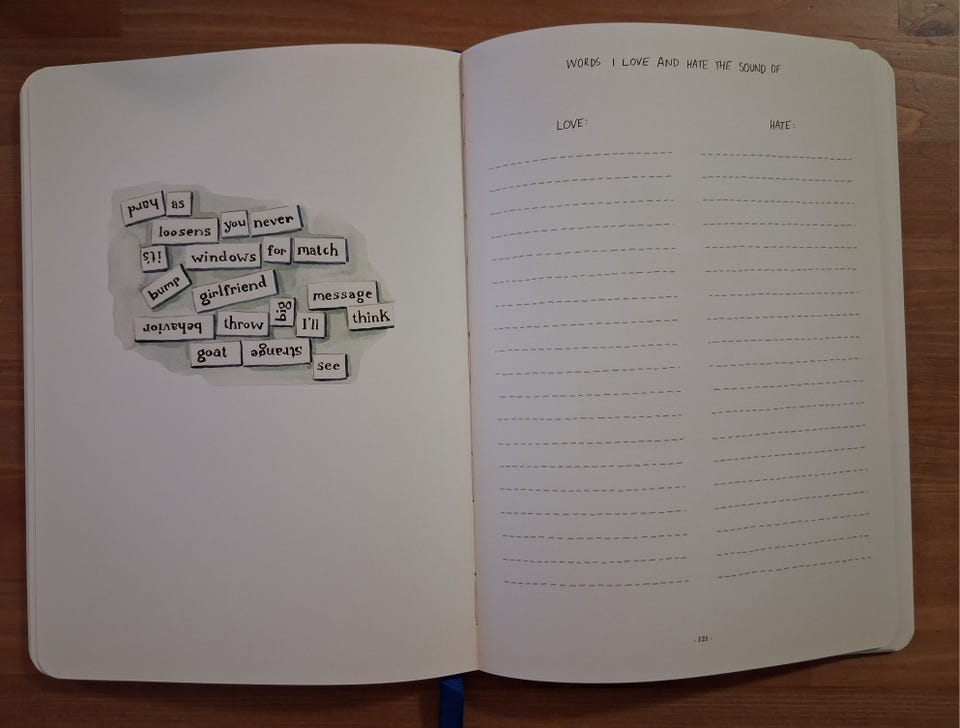 hard as
loosens you never
it's windows for match
bump girlfriend message
big
behavior throw I'll think
goat strange see
WORDS I LOVE AND HATE THE SOUND OF
LOVE: HATE:
- 121 -